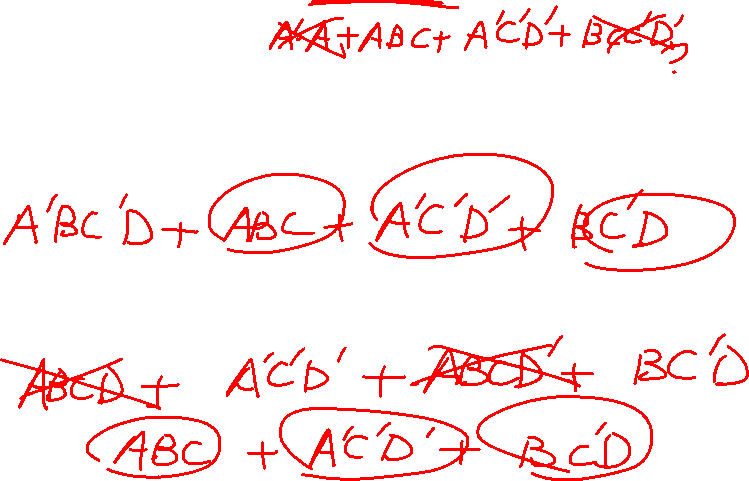 A'A+ABC+A'C'D'+BC'D'?
A'BC'D+ABC+A'C'D'+BC'D
ABCD+A'C'D'+ABCD'+BC'D
ABC+A'C'D'+BC'D